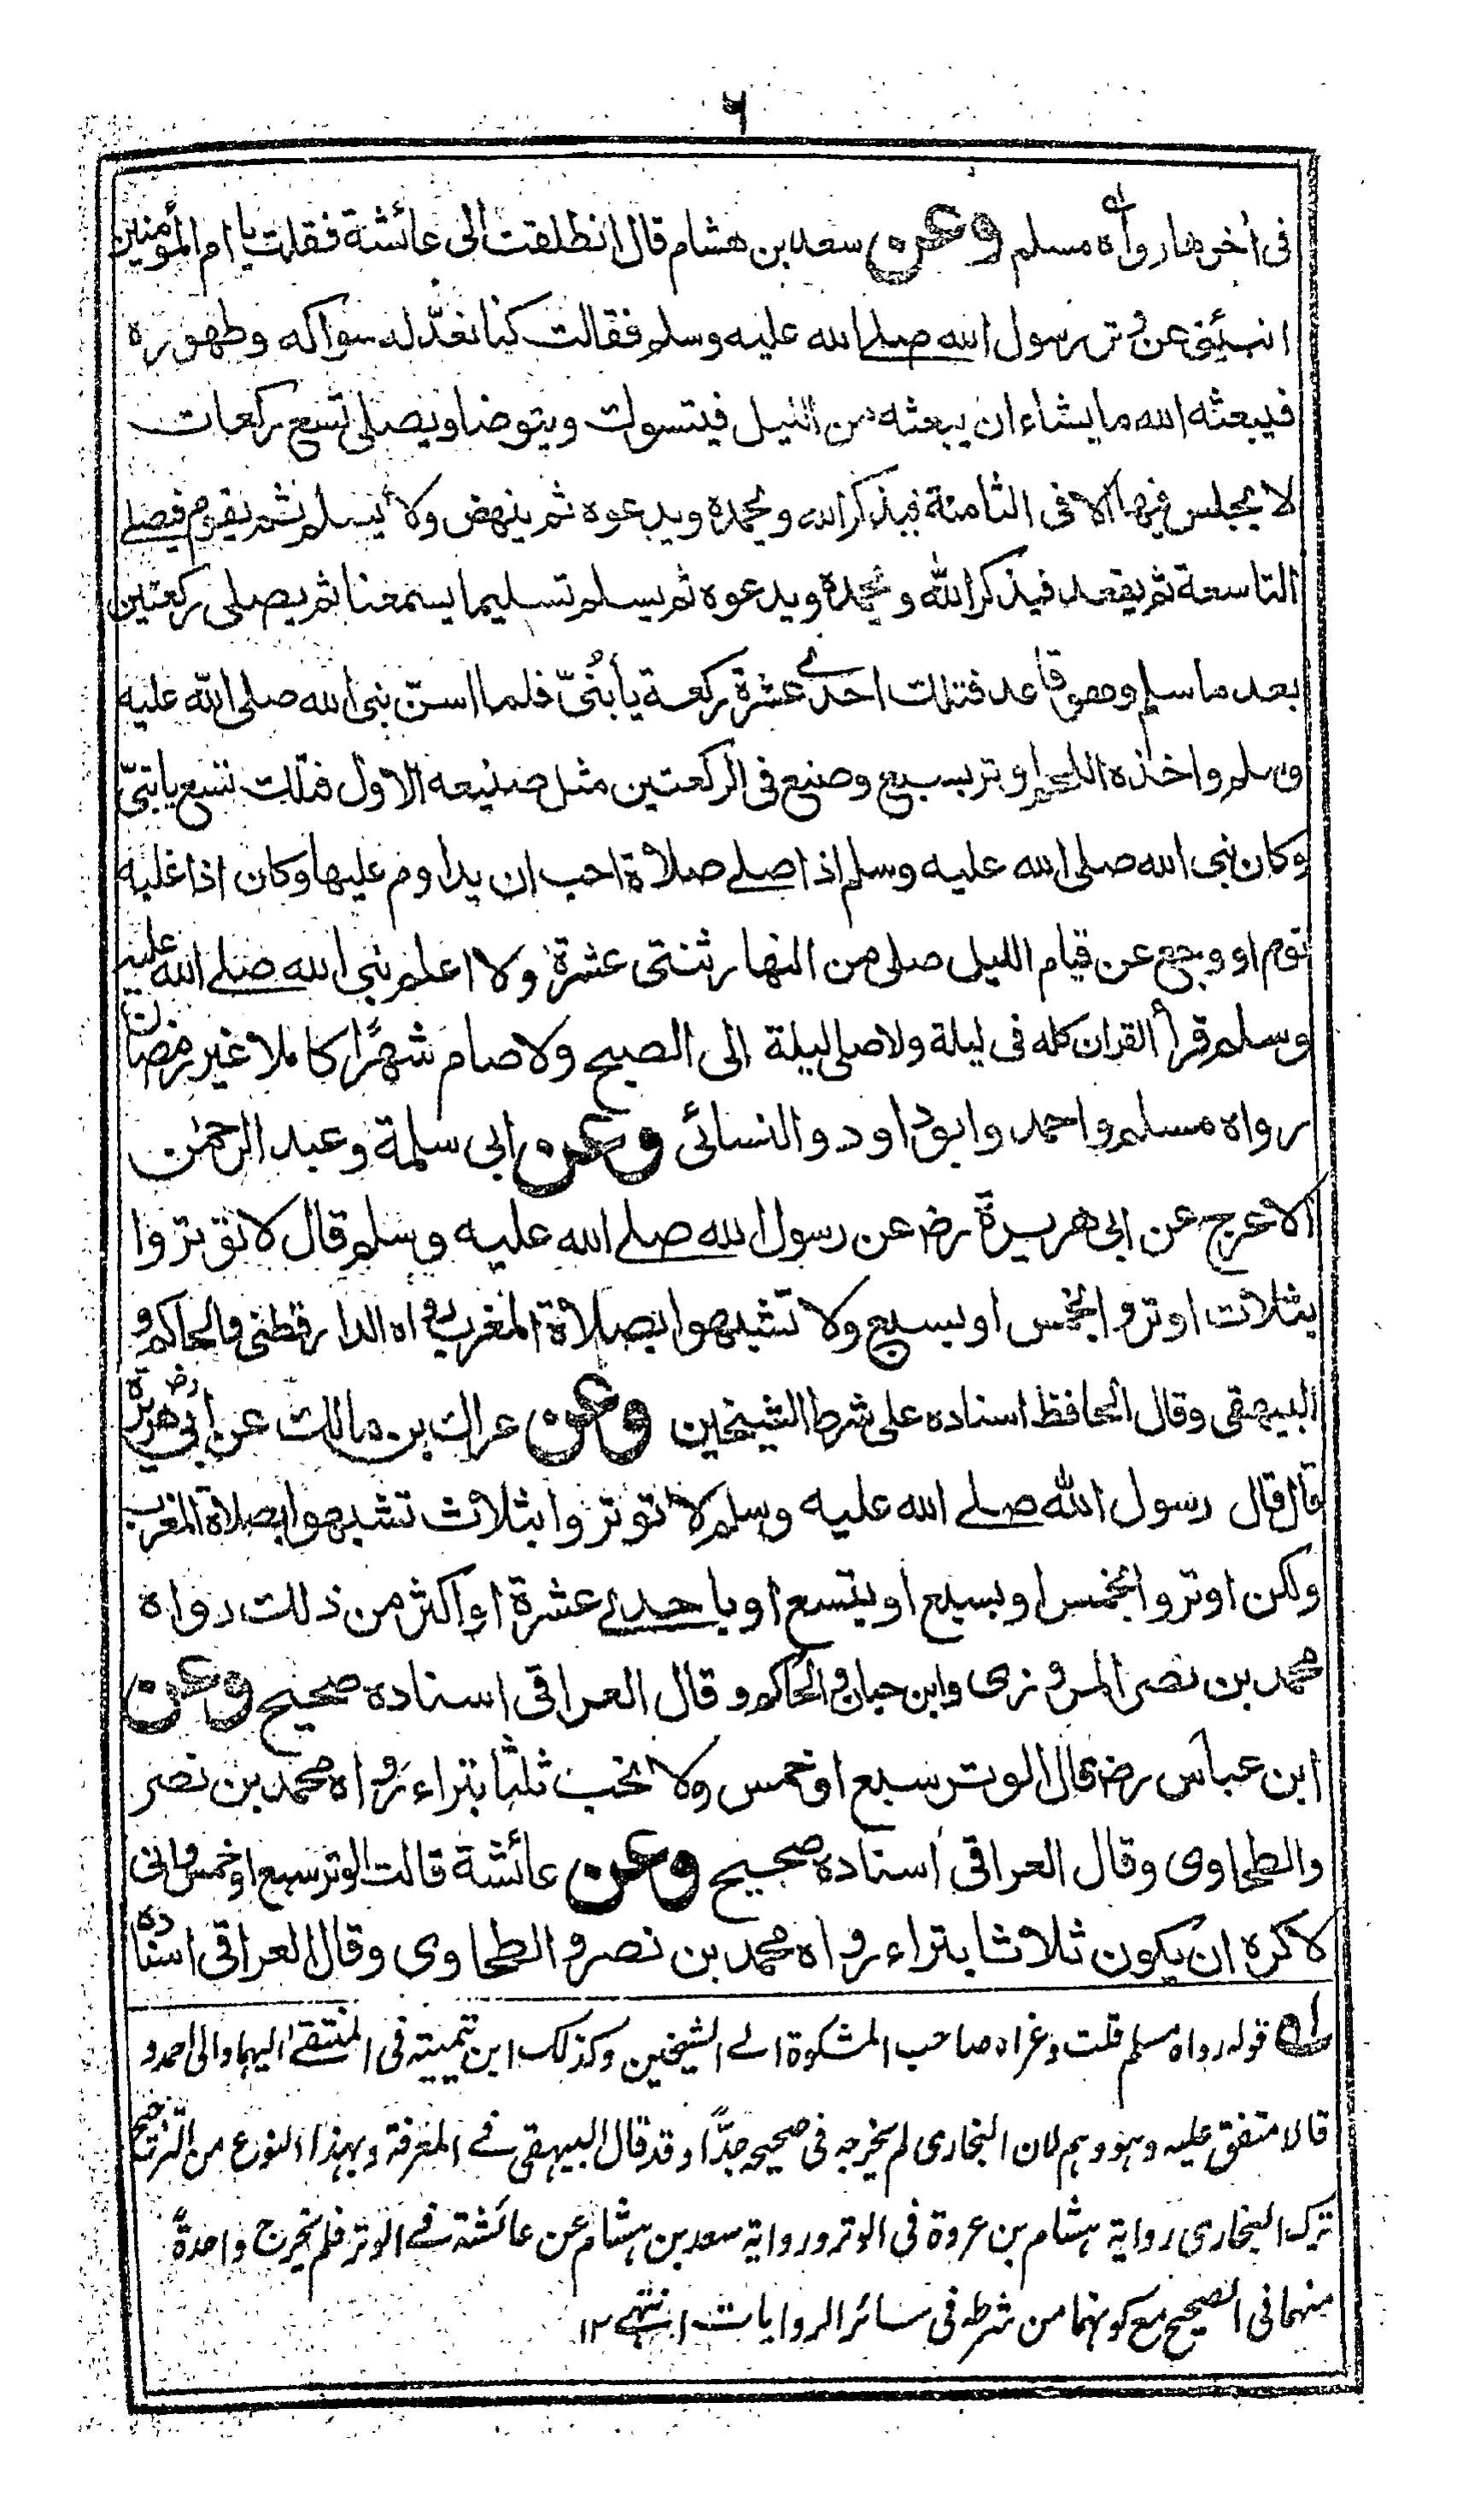 ٦
فى اٰخرها رواه له مسلم وعن سعد بن هشام قال انطلقت الى عائشة فقلت يا ام المؤمنين
انبئينى عن وتر رسول الله صلے الله عليه وسلم فقالت كنا نعدّ له سواكه وطهوره
فيبعثه الله ما يشاء ان يبعثه من الليل فيتسوك ويتوضا ويصلى تسع ركعات
لا يجلس فيها الا فى الثامنة فيذكر الله ويحمده ويدعوه ثم ينهض ولا يسلم ثم يقوم فيصلے
التاسعة ثم يقعد فيذكر الله ويحمدة ويدعوه ثم يسلم تسليما يسمعنا ثم يصلى ركعتين
بعد ما سلم وهو قاعد فتلك احدے عشرة ركعة يا بُنىّ فلما اسنّ نبى الله صلى الله عليه
وسلم واخذه اللحم اوتر بسبع وصنع فى الركعتين مثل صنيعه الاول فتلك تسع يا بنىّ
وكان نبى الله صلى الله عليه وسلم اذا صلے صلاة احب ان يداوم عليها وكان اذا غلبه
نوم او وجع عن قيام الليل صلى من النهار ثنتى عشرة ولا اعلم نبى الله صلے الله عليه
وسلم قرأ القران كله فى ليلة ولا صلى ليلة الى الصبح ولا صام شهرًا كاملا غير رمضان
رواه مسلم واحمد وابو داود والنسائى وعن ابى سلمة وعبد الرحمٰن
الاعرج عن ابى هريرة رض عن رسول الله صلے الله عليه وسلم قال لا توتروا
بثلاث اوتروا بخمس او بسبع ولا تشبهوا بصلاة المغرب رواه الدارقطنى والحاكم و
البيهقى وقال الحافظ اسناده على شرط الشيخين وعن عراك بن مالك عن ابى هريرة رض
قال قال رسول الله صلے الله عليه وسلم لا توتروا بثلاث تشبهوا بصلاة المغرب
ولكن اوتروا بخمس او بسبع او بتسع او باحدے عشرة او اكثر من ذلك رواه
محمد بن نصر المروزى وابن حبان والحاكم وقال العراقى اسناده صحيح وعن
ابن عباس رض قال الوتر سبع او خمس ولا نحب ثلثا بتراء رواه محمد بن نصر
والطحاوى وقال العراقى اسناده صحيح وعن عائشة قالت الوتر سبع او خمس وانى
لاكره ان يكون ثلاثا بتراء رواه محمد بن نصر والطحاوى وقال العراقى اسناده
له قوله رواه مسلم قلت وعزاه صاحب المشكوة الے الشيخين وكذلك ابن تيمية فى المنتقے اليهما والى احمد و
قالا متفق عليه وهو وهم لان البخارى لم يخرجه فى صحيحه جدًّا وقد قال البيهقى فے المعرفة وبهذا النوع من الترجيح
ترك البخارى رواية هشام بن عروة فى الوتر ورواية سعد بن هشام عن عائشة فے الوتر فلم يخرج واحدةً
منهما فى الصحيح مع كونهما من شرطه فى سائر الروايات انتهے ١٢